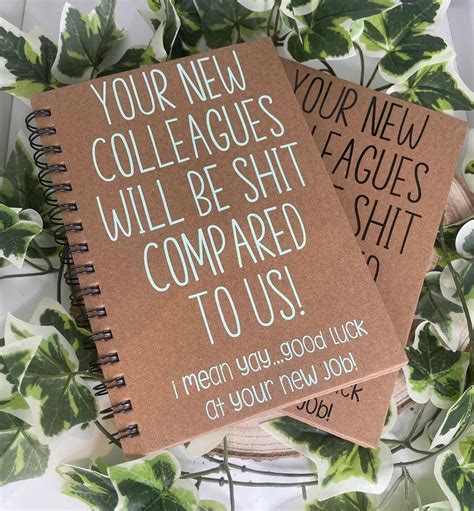 YOUR NEW
COLLEAGUES
WILL BE SHIT
COMPARED
TO US!
I MEAN YAY...GOOD LUCK
AT YOUR NEW JOB!
YOUR NEW
LEAGUES
SHIT
JOB!